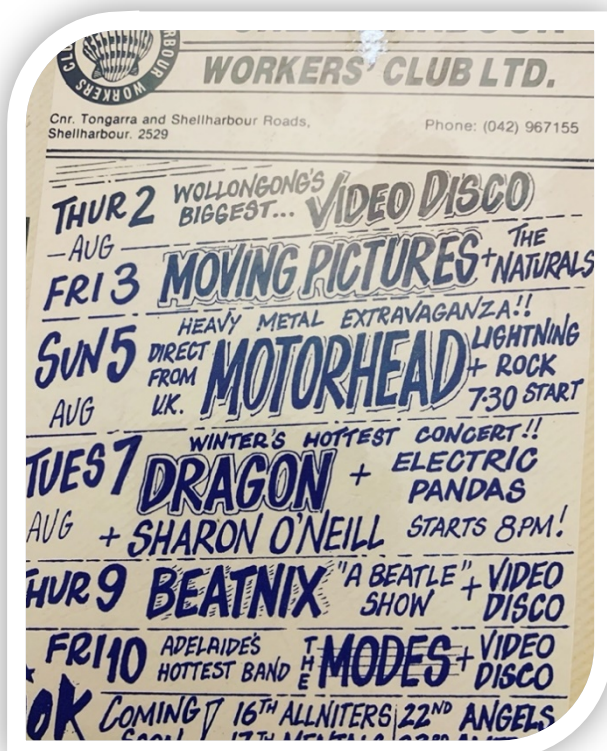 WORKERS CLUB
WORKERS' CLUB LTD.
Cnr. Tongarra and Shellharbour Roads,
Shellharbour. 2529
Phone: (042) 967155
THUR 2 WOLLONGONG'S BIGGEST... VIDEO DISCO
- AUG
FRI 3 MOVING PICTURES + THE NATURALS
HEAVY METAL EXTRAVAGANZA!!
SUN 5 DIRECT FROM U.K. MOTORHEAD LIGHTNING + ROCK
AUG 7.30 START
WINTER'S HOTTEST CONCERT!!
TUES 7 DRAGON + ELECTRIC PANDAS
AUG + SHARON O'NEILL STARTS 8PM!
THUR 9 BEATNIX "A BEATLE" SHOW + VIDEO DISCO
FRI 10 ADELAIDE'S HOTTEST BAND THE MODES + VIDEO DISCO
COMING 16TH ALLNITERS 22ND ANGELS
SOON 17TH MENTALS